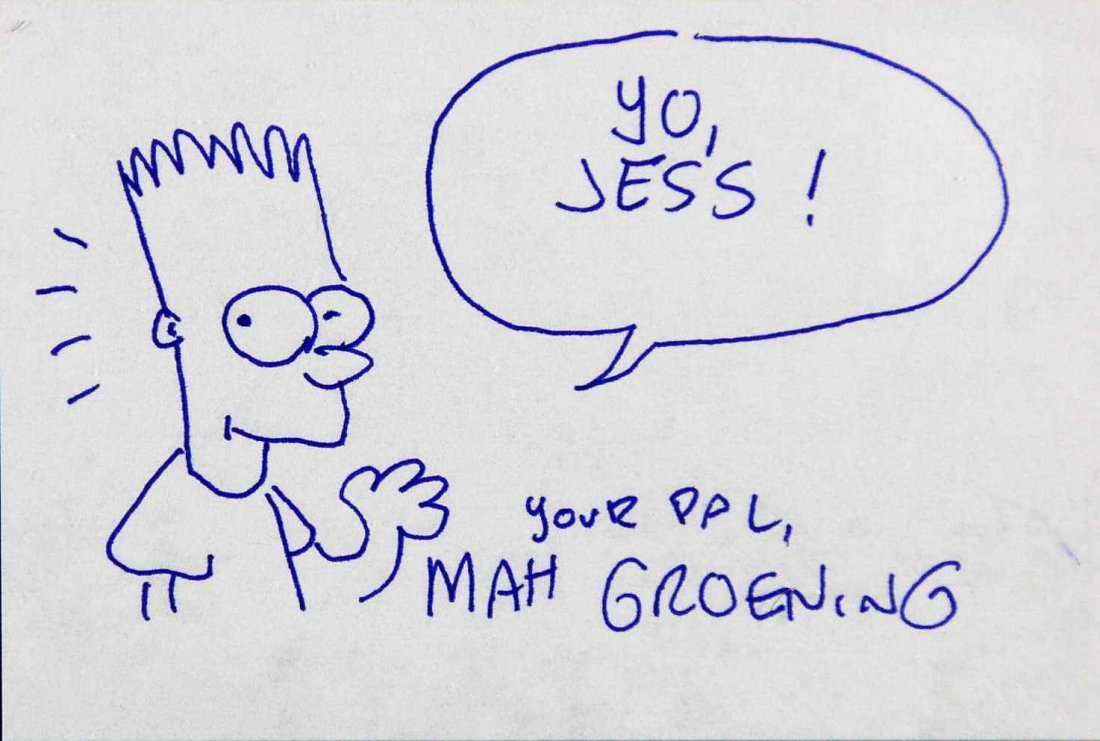 YO,
JESS !
YOUR PAL,
MAH GROENING